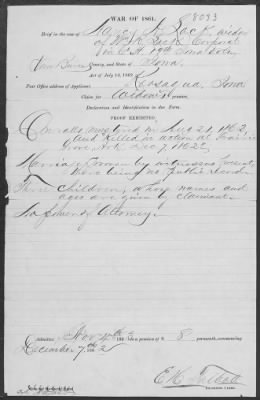 WAR OF 1861.
8093
Brief in the case of Nancy Jack, widow
of Jack Corporal
Co. 19th Iowa Vols
Van Buren County, and State of Iowa
Act of July 14, 1862
Post Office address of Applicant, Keosauqua, Iowa
Claim for Widow's pension.
Declaration and Identification in due Form.
PROOF EXHIBITED.
Enrolled, mustered in Aug 21, 1862,
and killed in action at Prairie
Grove Ark Dec 7, 1862
Marriage proven by witnesses present,
there being no public record
Three Children, whose names and
ages are given by claimant.
No power of Attorney.
Admitted Nov 186 to a pension of $ 8 per month, commencing
December 7th 1862
E. H. Talbott
EXAMINING CLERK.